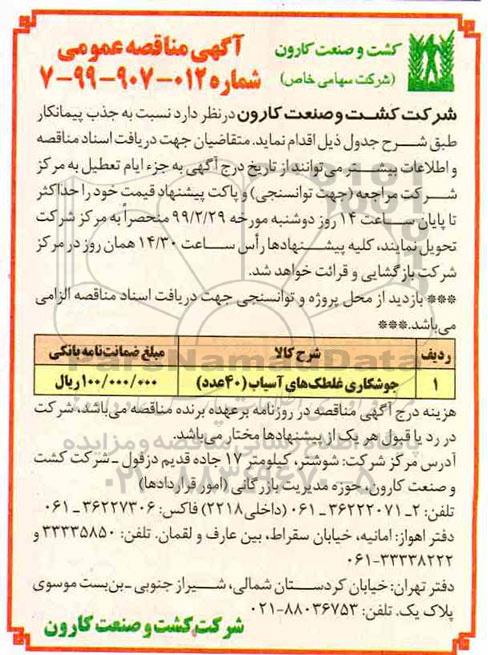 کشت و صنعت کارون
(شرکت سهامی خاص)
آگهی مناقصه عمومی
شماره ۰۱۲-۹۰۷-۹۹-۷
شرکت کشت و صنعت کارون در نظر دارد نسبت به جذب پیمانکار
طبق شرح جدول ذیل اقدام نماید. متقاضیان جهت دریافت اسناد مناقصه
و اطلاعات بیشتر می‌توانند از تاریخ درج آگهی به جزء ایام تعطیل به مرکز
شرکت مراجعه (جهت توانسنجی) و پاکت پیشنهاد قیمت خود را حداکثر
تا پایان ساعت ۱۴ روز دوشنبه مورخه ۹۹/۲/۲۹ منحصراً به مرکز شرکت
تحویل نمایند، کلیه پیشنهادها رأس ساعت ۱۴/۳۰ همان روز در مرکز
شرکت بازگشایی و قرائت خواهد شد.
*** بازدید از محل پروژه و توانسنجی جهت دریافت اسناد مناقصه الزامی
می‌باشد.***
ردیف شرح کالا مبلغ ضمانت‌نامه بانکی
۱ جوشکاری غلطک‌های آسیاب (۴۰عدد) ۱۰۰/۰۰۰/۰۰۰ ریال
هزینه درج آگهی مناقصه در روزنامه برعهده برنده مناقصه می‌باشد، شرکت
در رد یا قبول هر یک از پیشنهادها مختار می‌باشد.
آدرس مرکز شرکت: شوشتر، کیلومتر ۱۷ جاده قدیم دزفول ـ شرکت کشت
و صنعت کارون، حوزه مدیریت بازرگانی (امور قراردادها)
تلفن: ۲ـ ۳۶۲۲۲۰۷۱ـ۰۶۱ (داخلی۲۲۱۸) فاکس: ۳۶۲۲۷۳۰۶ـ۰۶۱
دفتر اهواز: امانیه، خیابان سقراط، بین عارف و لقمان. تلفن: ۳۳۳۳۵۸۵۰ و
۰۶۱-۳۳۳۳۸۲۲۲
دفتر تهران: خیابان کردستان شمالی، شیراز جنوبی ـ بن‌بست موسوی
پلاک یک. تلفن: ۸۸۰۳۶۷۵۳-۰۲۱
شرکت کشت و صنعت کارون
ParsNamadData
۰۲۱-۸۸۳۴۹۶۷۰-۵